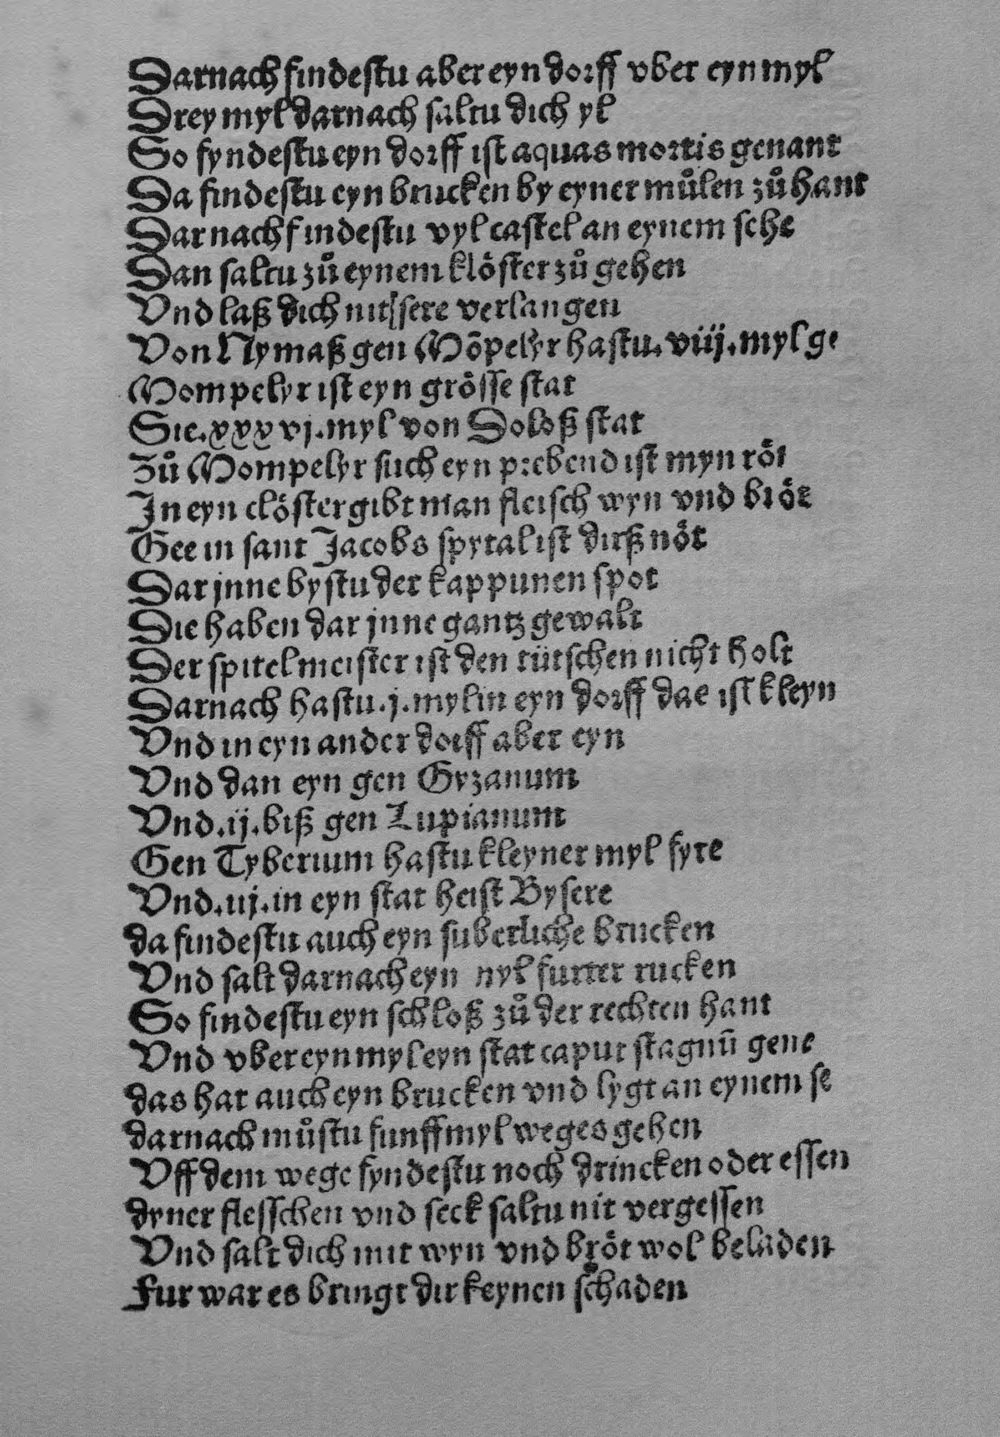 Darnach findestu aber eyn dorff vber eyn myl
Drey myl darnach saltu dich yl
So fyndestu eyn dorff ist aquas mortis genant
Da findestu eyn brucken by eyner můlen zů hant
Darnach findestu vyl castel an eynem sehe
Dan saltu zů eynem klöster zů gehen
Vnd laß dich nit sere verlangen
Von Nymaß gen Mõpelyr hastu. viij. myl ge
Mompelyr ist eyn grösse stat
Sie. xxxvj. myl von Doloß stat
Zů Mompelyr such eyn prebend ist myn röt
In eyn clöster gibt man fleisch wyn vnd bröt
Gee in sant Jacobs spytal ist dirß nöt
Dar jnne bystu der kappunen spot
Die haben dar jnne gantz gewalt
Der spitelmeister ist den tütschen nicht holt
Darnach hastu. j. myl in eyn dorff dae ist kleyn
Vnd in eyn ander dorff aber eyn
Vnd dan eyn gen Gyzanum
Vnd. ij. biß gen Lupianum
Gen Tyberium hastu kleyner myl fyre
Vnd. iij. in eyn stat heist Bysere
da findestu auch eyn suberliche brucken
Vnd salt darnach eyn nyl furter rucken
So findestu eyn schloß zů der rechten hant
Vnd vber eyn myl eyn stat caput stagnū gene
das hat auch eyn brucken vnd lygt an eynem se
darnach můstu funff myl weges gehen
Vff dem wege fyndestu noch drincken oder essen
dyner flesschen vnd seck saltu nit vergessen
Vnd salt dich mit wyn vnd bröt wol beladen
Fur war es bringt dir keynen schaden